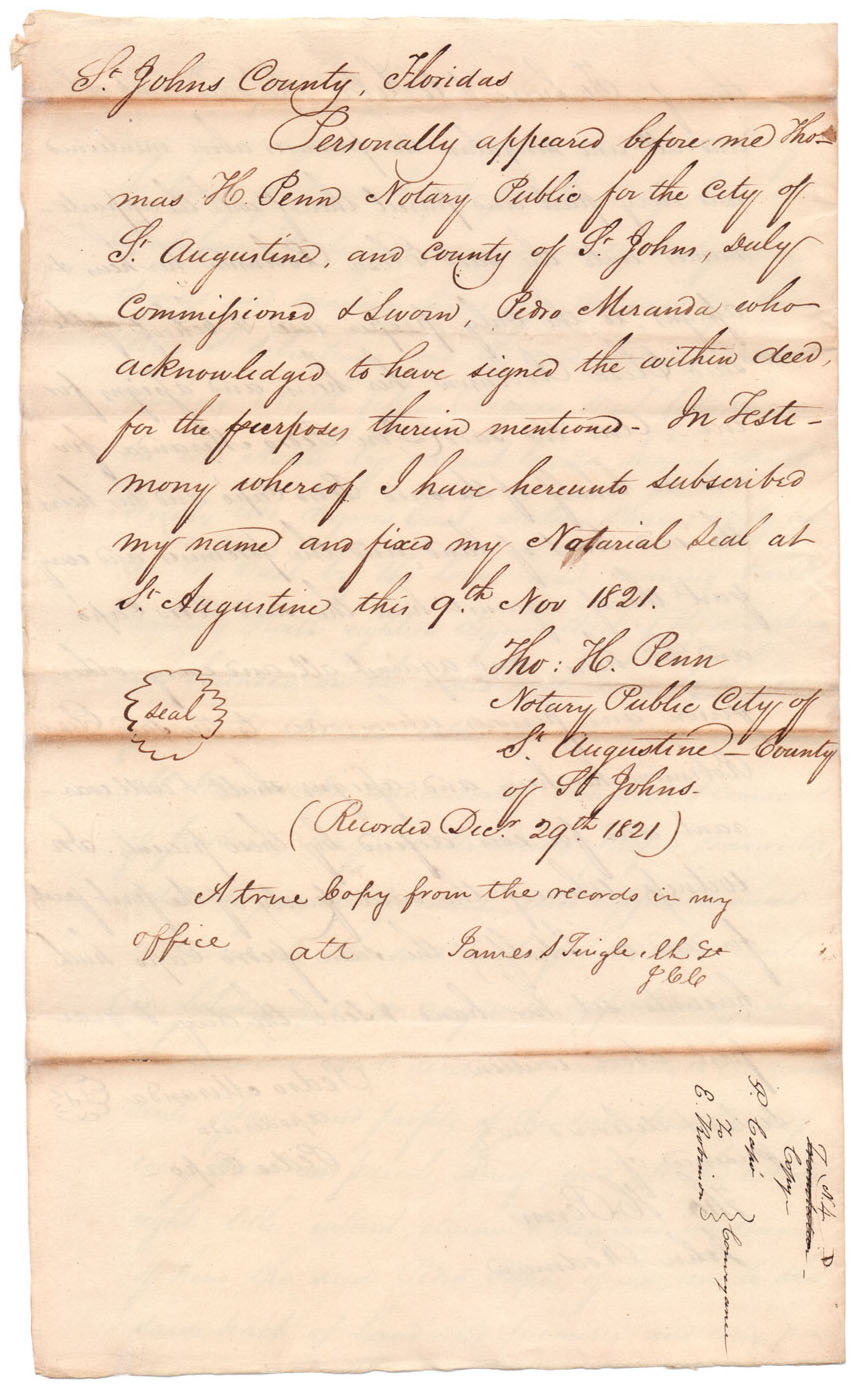 St. Johns County, Floridas
Personally appeared before me Tho-
mas H. Penn Notary Public for the City of
St. Augustine, and County of St. Johns, Duly
Commissioned & Sworn, Pedro Miranda who
acknowledged to have signed the within deed,
for the purposes therein mentioned - In Testi-
mony whereof I have hereunto subscribed
my name and fixed my Notarial Seal at
St. Augustine this 9.th Nov 1821.
Tho: H. Penn
Seal
Notary Public City of
St. Augustine - County
of St Johns-
(Recorded Decr. 29th. 1821)
A true Copy from the records in my
office att James S Tingle
JCC
P. Capo
To
E. Robinson
Conveyance
Copy-
No. 4